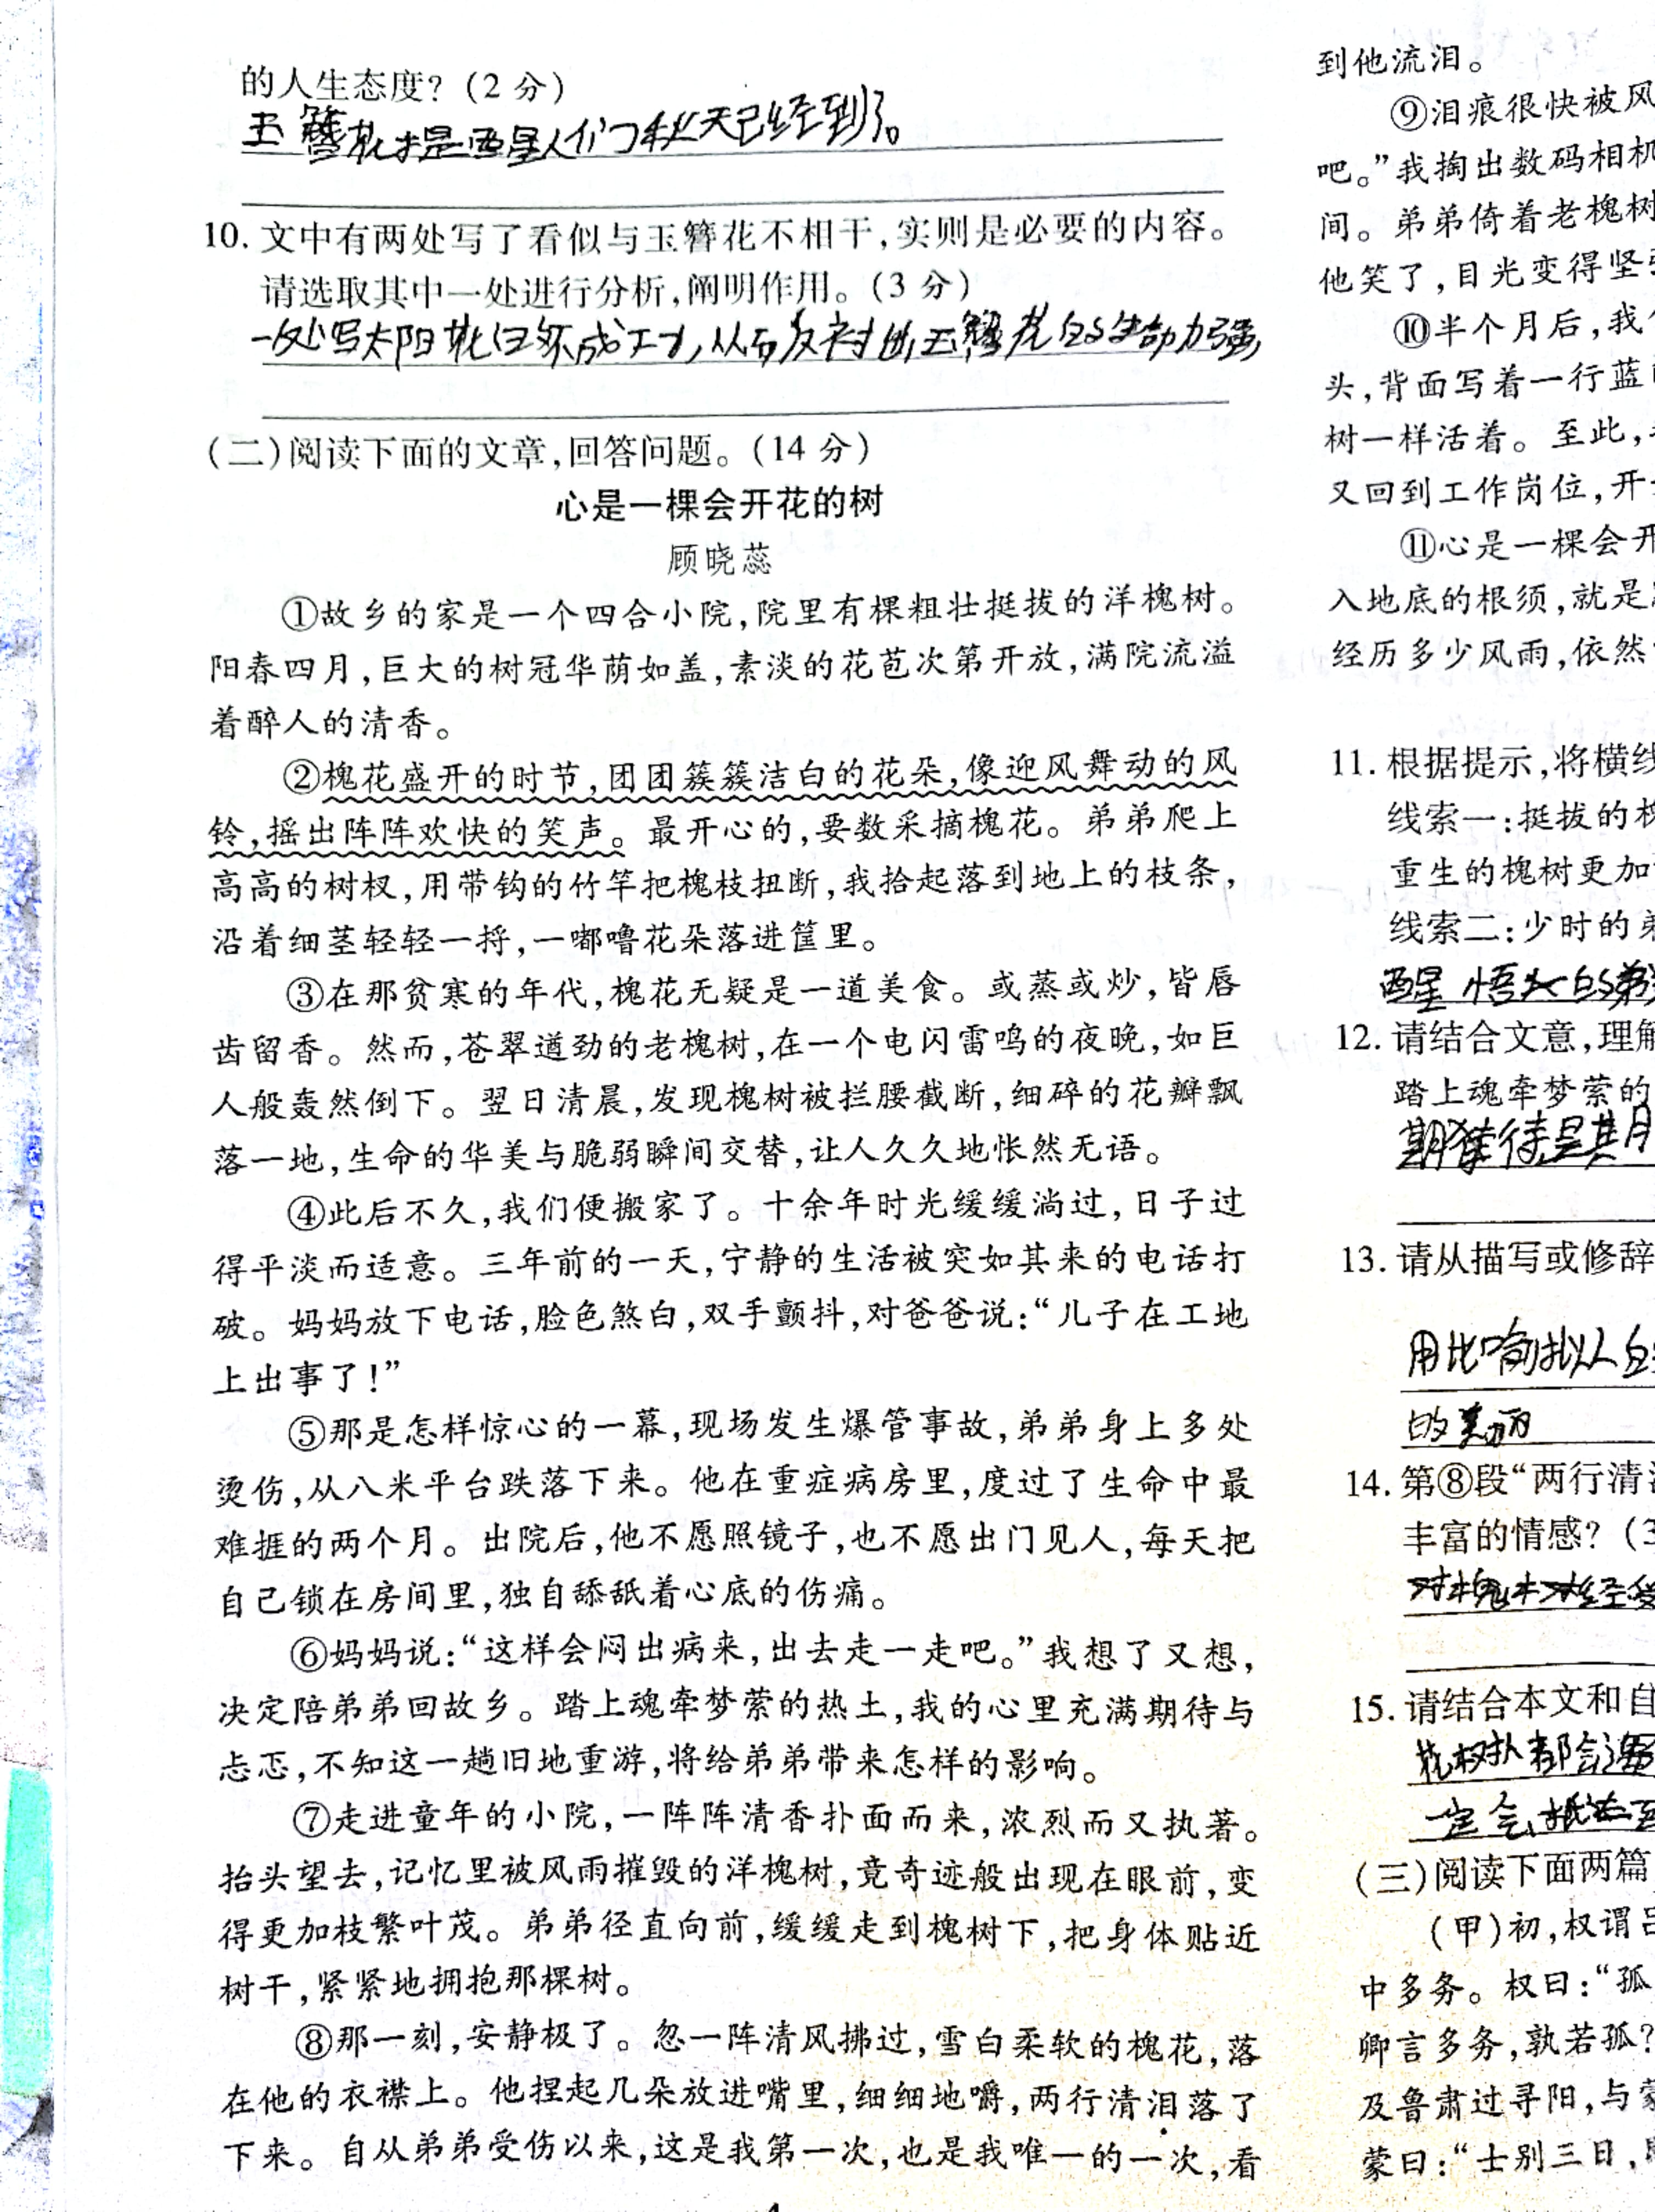 的人生态度？(2 分)
玉簪花提醒人们秋天已经到了。
10. 文中有两处写了看似与玉簪花不相干，实则是必要的内容。
请选取其中一处进行分析，阐明作用。(3 分)
一处写太阳花已经成了，从而反衬出玉簪花的生命力强，
(二)阅读下面的文章，回答问题。(14 分)
心是一棵会开花的树
顾晓蕊
①故乡的家是一个四合小院，院里有棵粗壮挺拔的洋槐树。
阳春四月，巨大的树冠华荫如盖，素淡的花苞次第开放，满院流溢
着醉人的清香。
②槐花盛开的时节，团团簇簇洁白的花朵，像迎风舞动的风
铃，摇出阵阵欢快的笑声。最开心的，要数采摘槐花。弟弟爬上
高高的树杈，用带钩的竹竿把槐枝扭断，我拾起落到地上的枝条，
沿着细茎轻轻一捋，一嘟噜花朵落进筐里。
③在那贫寒的年代，槐花无疑是一道美食。或蒸或炒，皆唇
齿留香。然而，苍翠遒劲的老槐树，在一个电闪雷鸣的夜晚，如巨
人般轰然倒下。翌日清晨，发现槐树被拦腰截断，细碎的花瓣飘
落一地，生命的华美与脆弱瞬间交替，让人久久地怅然无语。
④此后不久，我们便搬家了。十余年时光缓缓淌过，日子过
得平淡而适意。三年前的一天，宁静的生活被突如其来的电话打
破。妈妈放下电话，脸色煞白，双手颤抖，对爸爸说：“儿子在工地
上出事了！”
⑤那是怎样惊心的一幕，现场发生爆管事故，弟弟身上多处
烫伤，从八米平台跌落下来。他在重症病房里，度过了生命中最
难捱的两个月。出院后，他不愿照镜子，也不愿出门见人，每天把
自己锁在房间里，独自舔舐着心底的伤痛。
⑥妈妈说：“这样会闷出病来，出去走一走吧。”我想了又想，
决定陪弟弟回故乡。踏上魂牵梦萦的热土，我的心里充满期待与
忐忑，不知这一趟旧地重游，将给弟弟带来怎样的影响。
⑦走进童年的小院，一阵阵清香扑面而来，浓烈而又执著。
抬头望去，记忆里被风雨摧毁的洋槐树，竟奇迹般出现在眼前，变
得更加枝繁叶茂。弟弟径直向前，缓缓走到槐树下，把身体贴近
树干，紧紧地拥抱那棵树。
⑧那一刻，安静极了。忽一阵清风拂过，雪白柔软的槐花，落
在他的衣襟上。他捏起几朵放进嘴里，细细地嚼，两行清泪落了
下来。自从弟弟受伤以来，这是我第一次，也是我唯一的一次，看
到他流泪。
⑨泪痕很快被风
吧。”我掏出数码相机
间。弟弟倚着老槐树
他笑了，目光变得坚
⑩半个月后，我
头，背面写着一行蓝
树一样活着。至此，
又回到工作岗位，开
⑪心是一棵会开
入地底的根须，就是
经历多少风雨，依然
11. 根据提示，将横线
线索一：挺拔的
重生的槐树更加
线索二：少时的
醒悟后的弟
12. 请结合文意，理解
踏上魂牵梦萦的
期待是
13. 请从描写或修辞
用比喻拟人的
的美丽
14. 第⑧段“两行清
丰富的情感？(3
15. 请结合本文和自
一定会
(三)阅读下面两篇
(甲)初，权谓吕
中多务。权曰：“孤
卿言多务，孰若孤？
及鲁肃过寻阳，与蒙
蒙曰：“士别三日，